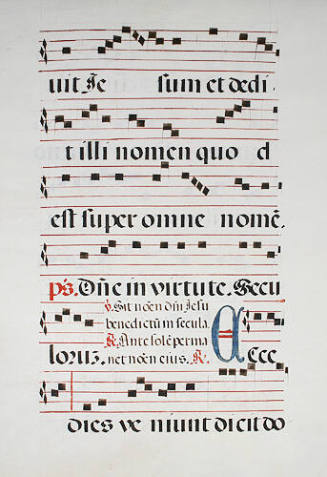 uit Je sum et dedi.
t illi nomen quo d
est super omne nomē.
ps. Dñe in virtute. Secu
℣. Sit noēn dñi Jesu
benedictū in secula.
℟. Ante solē perma
net noēn eius. ℟.
loruz. Ecce
dies ve niunt dicit do